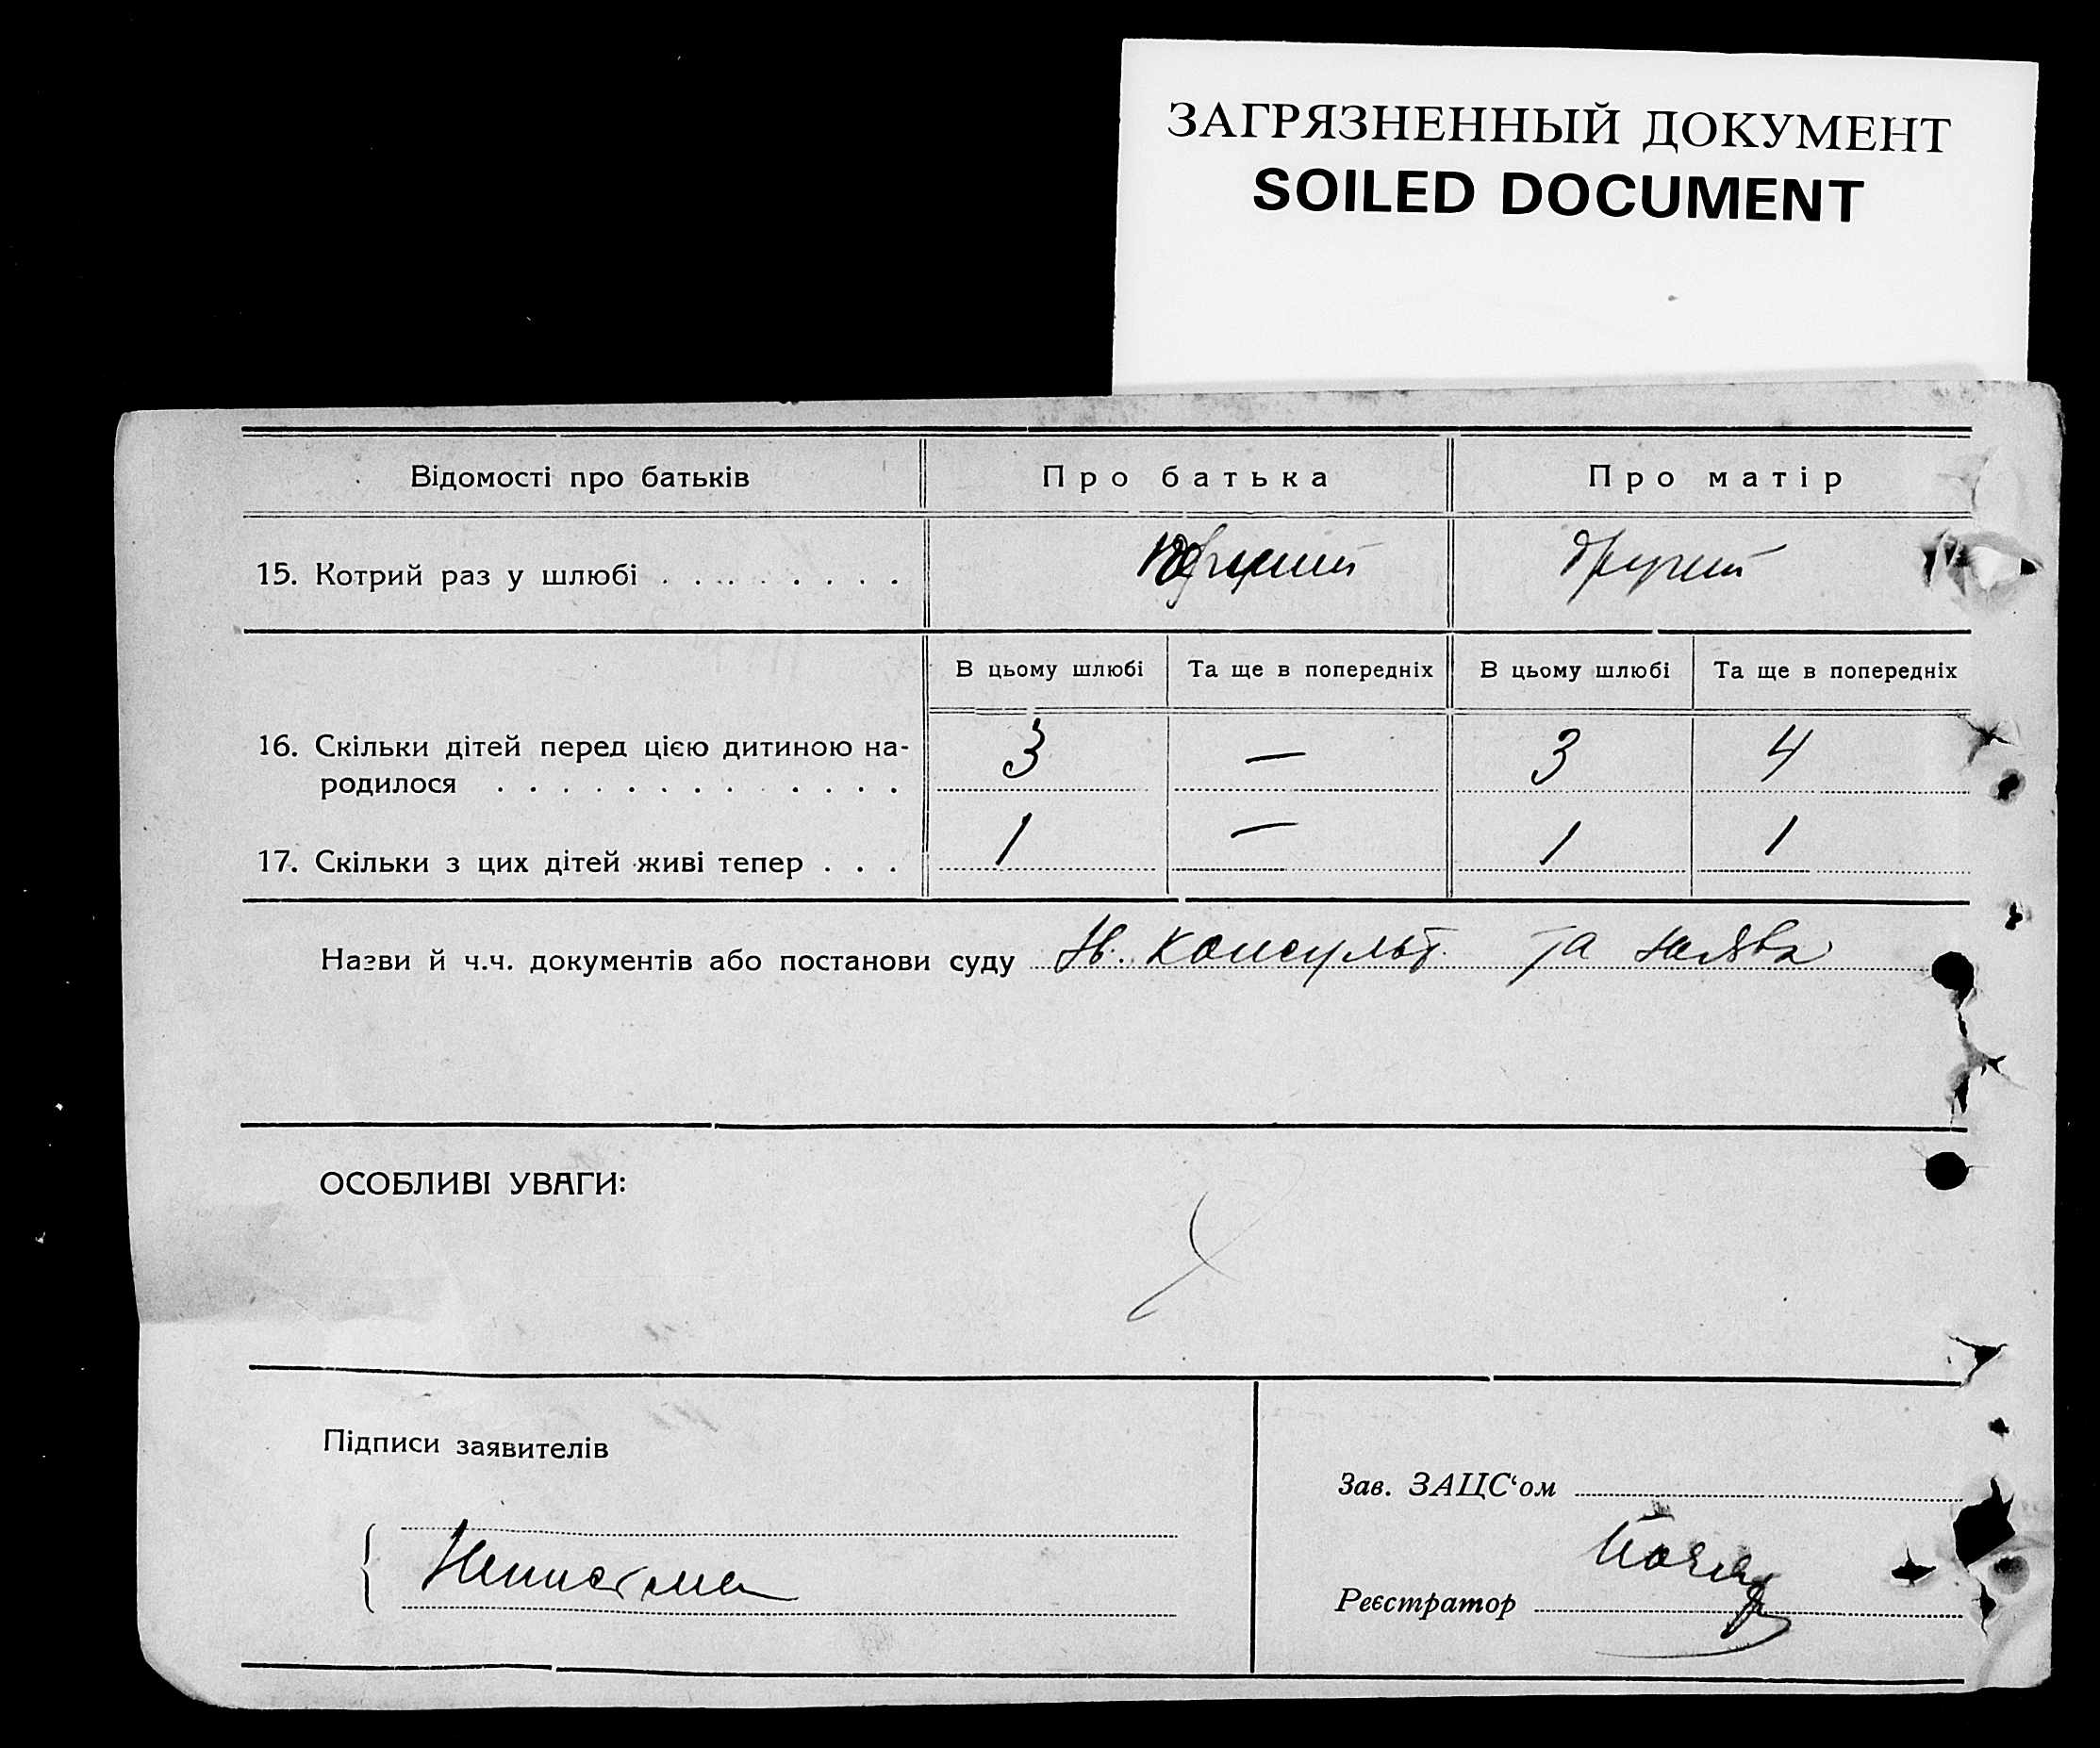 ЗАГРЯЗНЕННЫЙ ДОКУМЕНТ
SOILED DOCUMENT
Відомості про батьків Про батька Про матір
15. Котрий раз у шлюбі . . . . . . . . другий
В цьому шлюбі Та ще в попередніх В цьому шлюбі Та ще в попередніх
16. Скільки дітей перед цією дитиною на-
родилося . . . . . . . . . . . . . 3 — 3 4
17. Скільки з цих дітей живі тепер . . . 1 — 1 1
Назви й ч.ч. документів або постанови суду консульт. та заява
ОСОБЛИВІ УВАГИ:
Підписи заявителів
Зав. ЗАЦС‘ом
Реєстратор